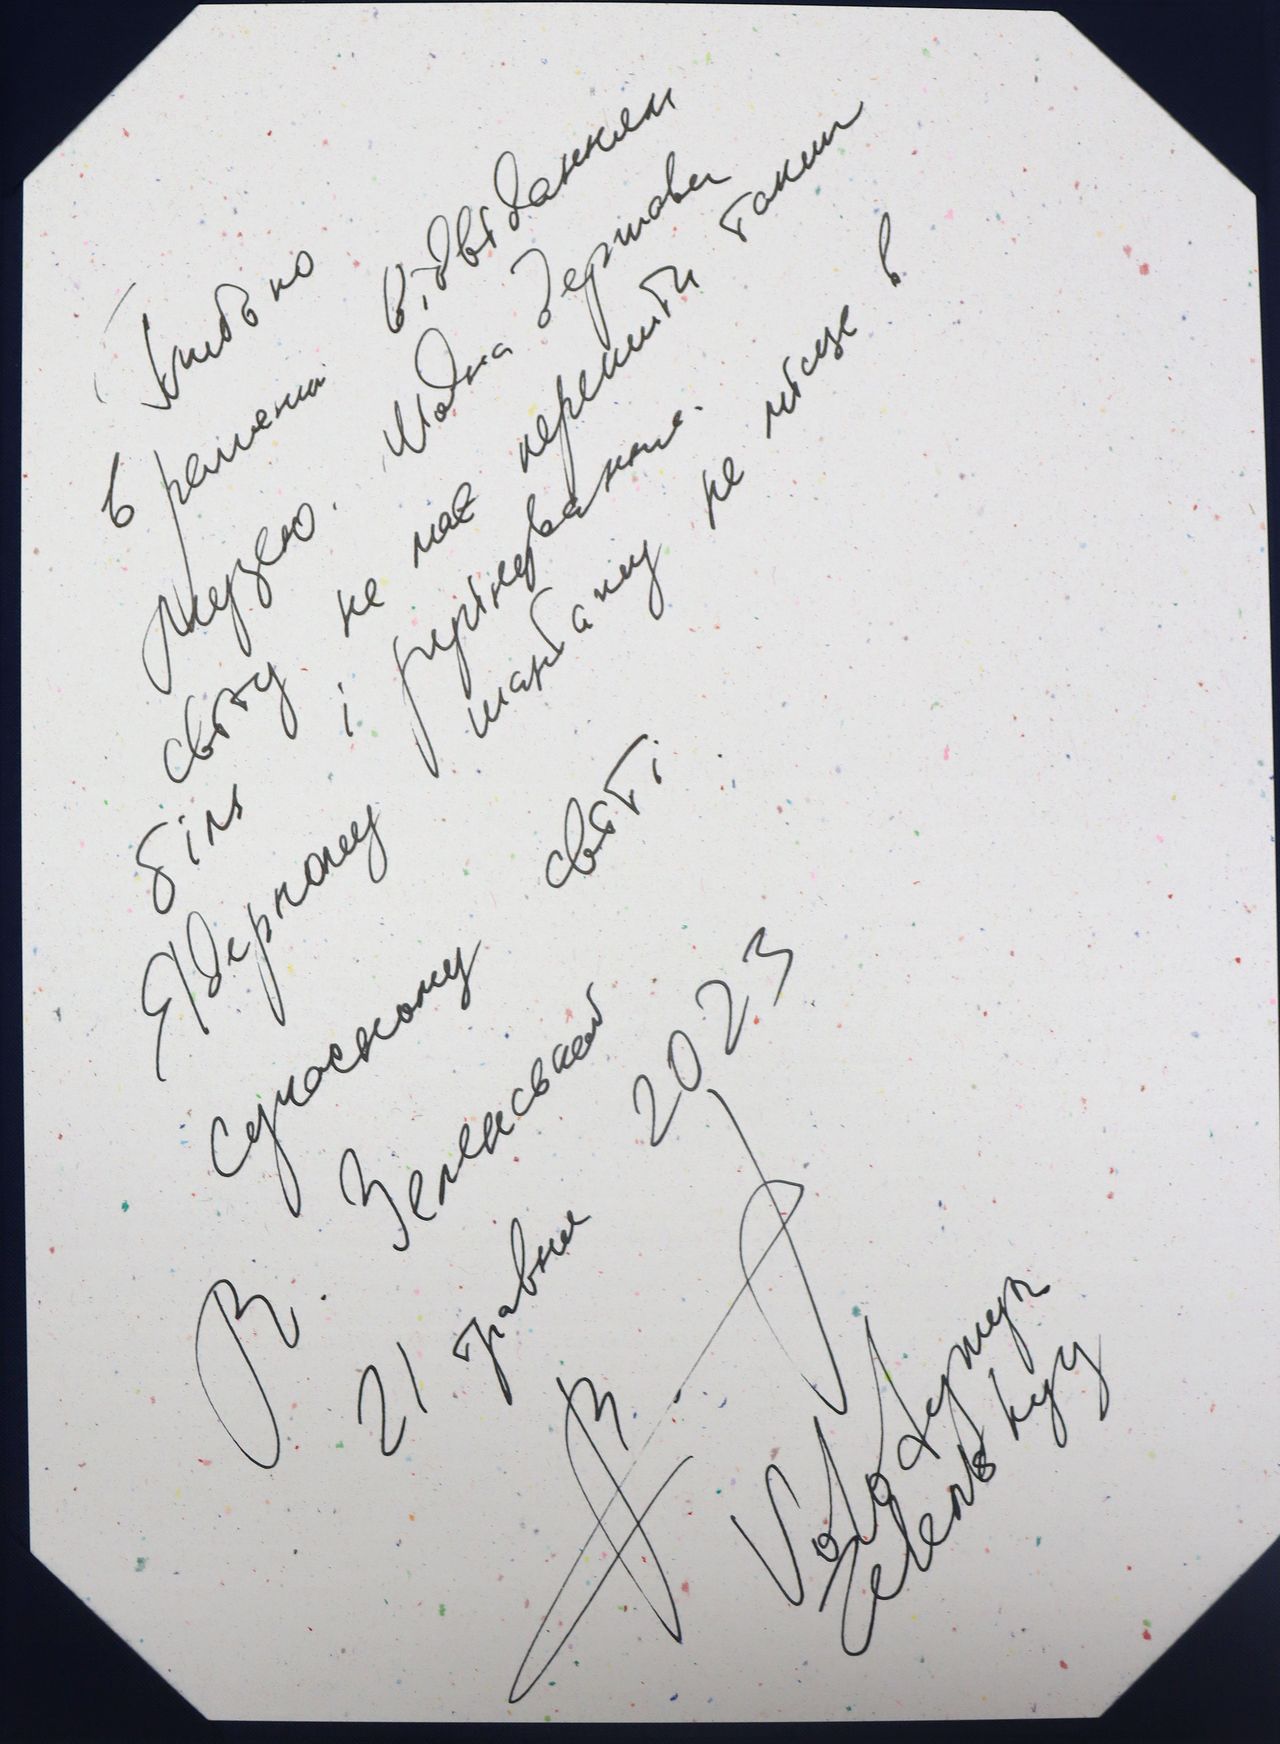 Глибоко
вражений відвіданням
Музею. Жодна держава
світу не має пережити такий
біль і руйнування.
Ядерному шантажу не місце в
сучасному світі.
В. Зеленський
21 травня 2023
Volodymyr
Zelenskyy